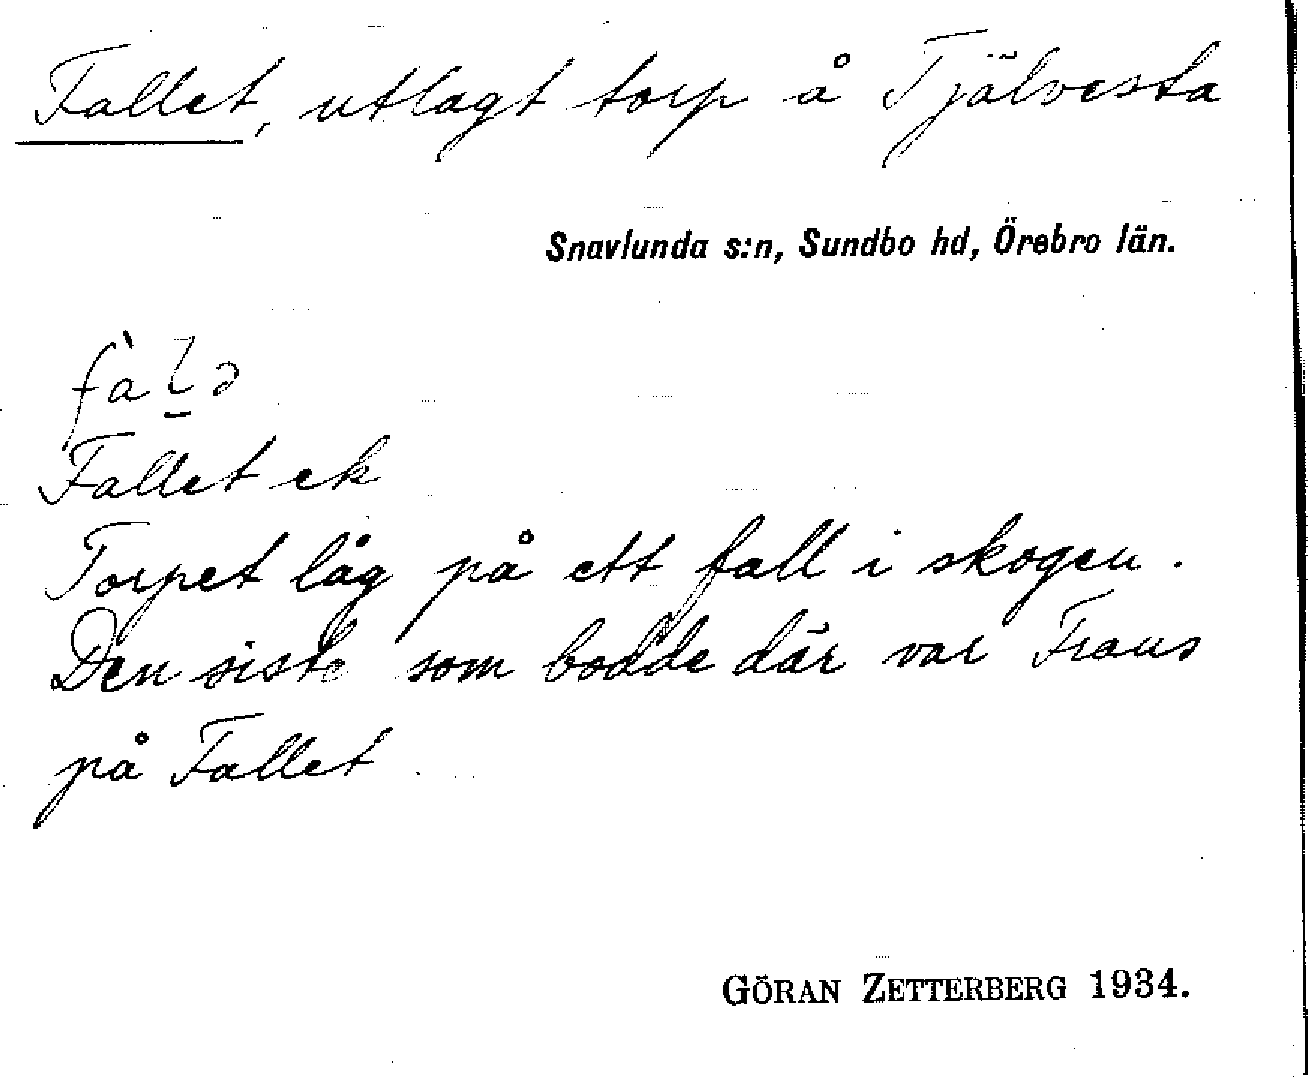 Fallet, utlagt torp å Tjälvesta
Snavlunda s:n, Sundbo hd, Örebro län.
fàl̠ə
Fallet ek
Torpet låg på ett fall i skogen.
Den siste som bodde där var Frans
på Fallet
GÖRAN ZETTERBERG 1934.